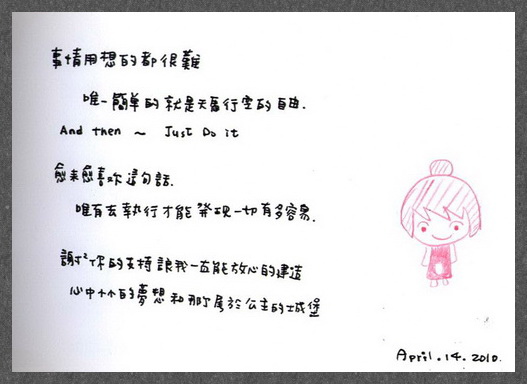 事情用想的都很難
唯一簡單的就是天馬行空的自由.
And then ~ Just Do it
愈來愈喜歡這句話.
唯有去執行才能發現一切有多容易.
謝謝你的支持讓我一直能放心的建造
心中小小的夢想和那了屬於公主的城堡
April.14.2010.